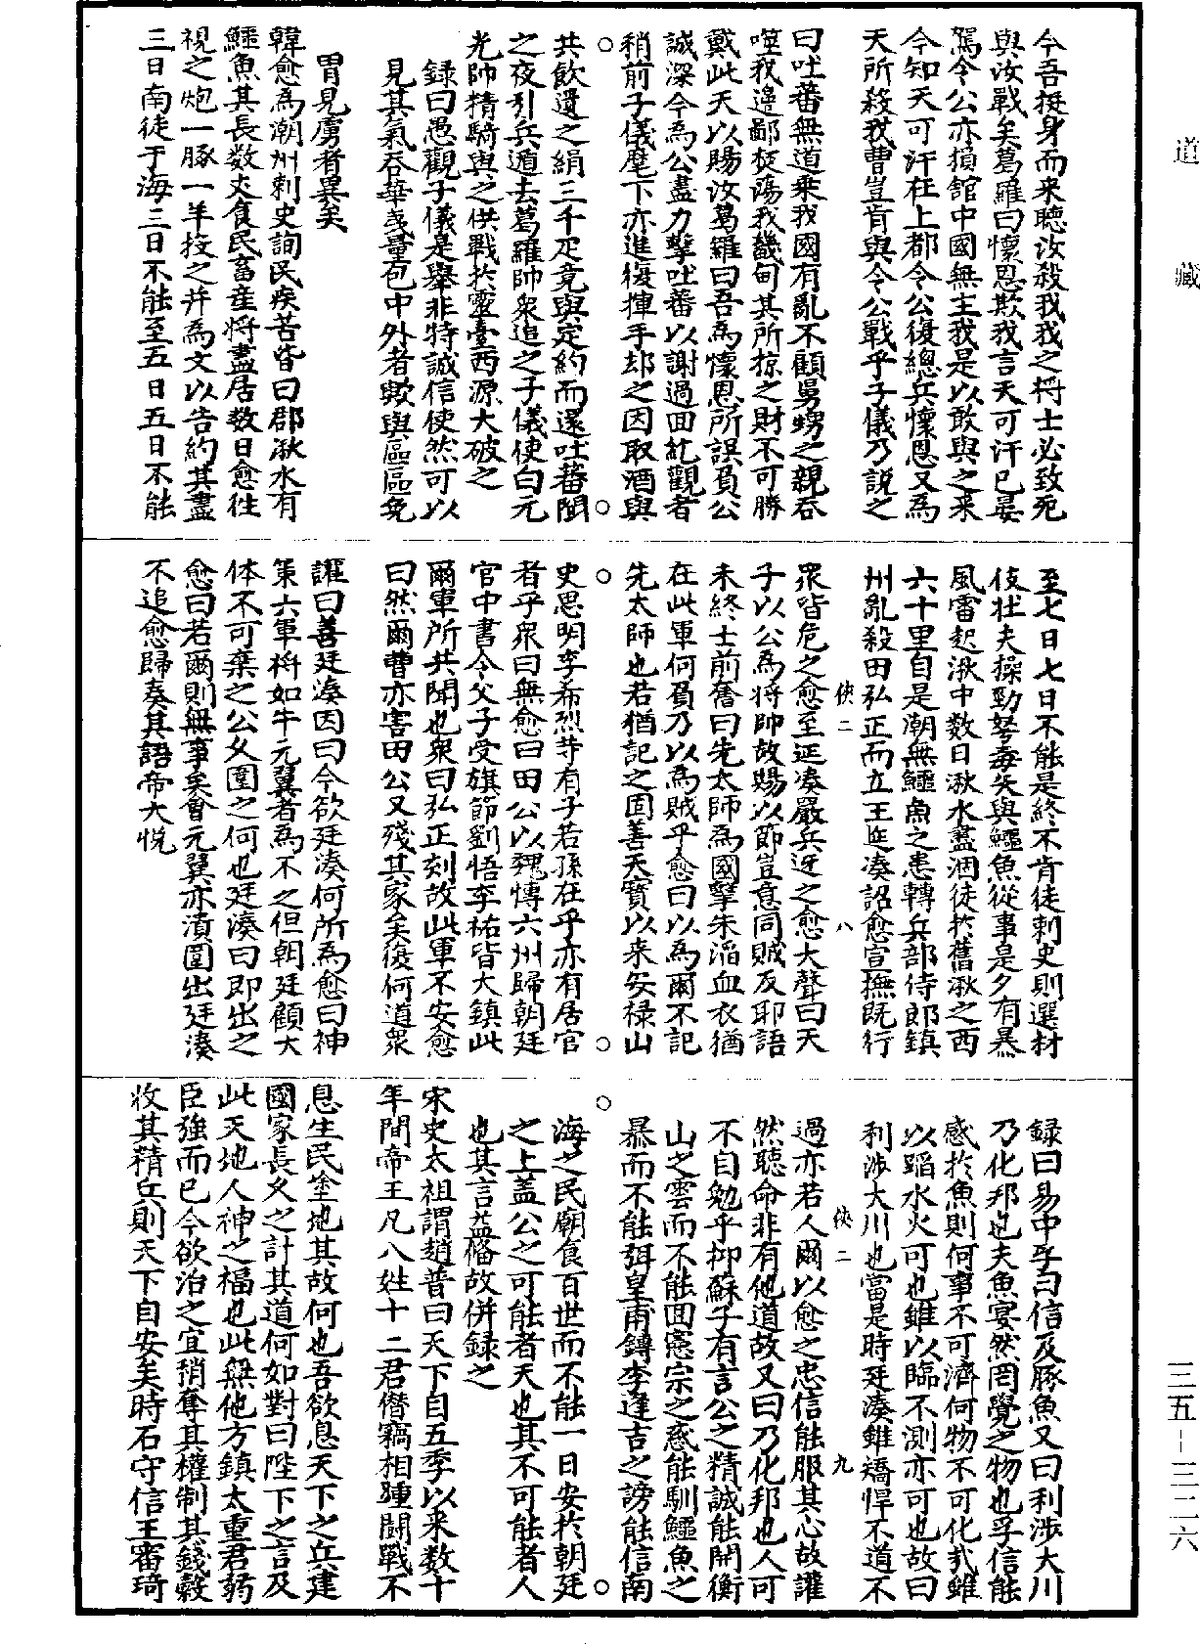 道藏
今吾挺身而来聽汝殺我我之将士必致死
與汝戰矣葛羅曰懷恩欺我言天可汗已晏
駕令公亦損舘中國無主我是以敢與之来
今知天可汗在上都令公復總兵懷恩又為
天所殺我曹豈肯與令公戰乎子儀乃説之
曰吐蕃無道乘我國有亂不顧舅甥之親吞
噬我邊鄙焚蕩我畿甸其所掠之財不可勝
戴此天以賜汝葛羅曰吾為懷恩所誤負公
誠深今為公盡力擊吐蕃以謝過回紇觀者
稍前子儀麾下亦進復揮手却之因取酒與
共飲遺之絹三千疋竟與定約而還吐蕃聞
之夜引兵遁去葛羅帥衆追之子儀使白元
光帥精騎與之俱戰扵靈臺西源大破之
録曰愚觀子儀是舉非特誠信使然可以
見其氣吞華戎量包中外者歟與區區免
胃見虜者異矣
韓愈為潮州刺史詢民疾苦皆曰郡湫水有
鱷魚其長数丈食民畜産将盡居数日愈往
視之炮一豚一羊投之并為文以告約其盡
三日南徒于海三日不能至五日五日不能
至七日七日不能是終不肯徒刺史則選材
伎壮夫操勁弩毒矢與鱷魚從事是夕有暴
風雷起湫中数日湫水盡涸徒扵舊湫之西
六十里自是潮無鱷魚之患轉兵部侍郎鎮
州亂殺田弘正而立王廷凑詔愈宣撫既行
俠二
八
衆皆危之愈至廷凑嚴兵迓之愈大聲曰天
子以公為将帥故賜以節豈意同賊反耶語
未終士前奮曰先太師為國擊朱滔血衣猶
在此軍何負乃以為賊乎愈曰以為爾不記
先太師也若猶記之固善天寶以来安禄山
史思明李希烈等有子若孫在乎亦有居官
者乎衆曰無愈曰田公以魏博六州歸朝廷
官中書令父子受旗節劉悟李祐皆大鎮此
爾軍所共聞也衆曰弘正刻故此軍不安愈
曰然爾曹亦害田公又殘其家矣復何道衆
讙曰善廷凑因曰今欲廷凑何所為愈曰神
策六軍将如牛元翼者為不乏但朝廷顧大
体不可棄之公久圍之何也廷凑曰即出之
愈曰若爾則無事矣會元翼亦潰圍出廷凑
不追愈歸奏其語帝大悦
録曰易中孚曰信及豚魚又曰利涉大川
乃化邦也夫魚㝠然罔覺之物也孚信能
感扵魚則何事不可濟何物不可化哉雖
以蹈水火可也雖以臨不測亦可也故曰
利涉大川也當是時廷凑雖矯悍不道不
俠二
九
過亦若人爾以愈之忠信能服其心故讙
然聽命非有他道故又曰乃化邦也人可
不自勉乎抑蘇子有言公之精誠能開衡
山之雲而不能回憲宗之惑能馴鱷魚之
暴而不能弭皇甫鎛李逢吉之謗能信南
海之民廟食百世而不能一日安扵朝廷
之上盖公之可能者天也其不可能者人
也其言益偹故併録之
宋史太祖謂趙普曰天下自五季以来数十
年間帝王凡八姓十二君僭竊相踵鬬戰不
息生民塗地其故何也吾欲息天下之兵建
國家長久之計其道何如對曰陛下之言及
此天地人神之福也此無他方鎮太重君弱
臣強而已今欲治之宜稍奪其權制其錢穀
收其精兵則天下自安矣時石守信王審琦
三五-三二六